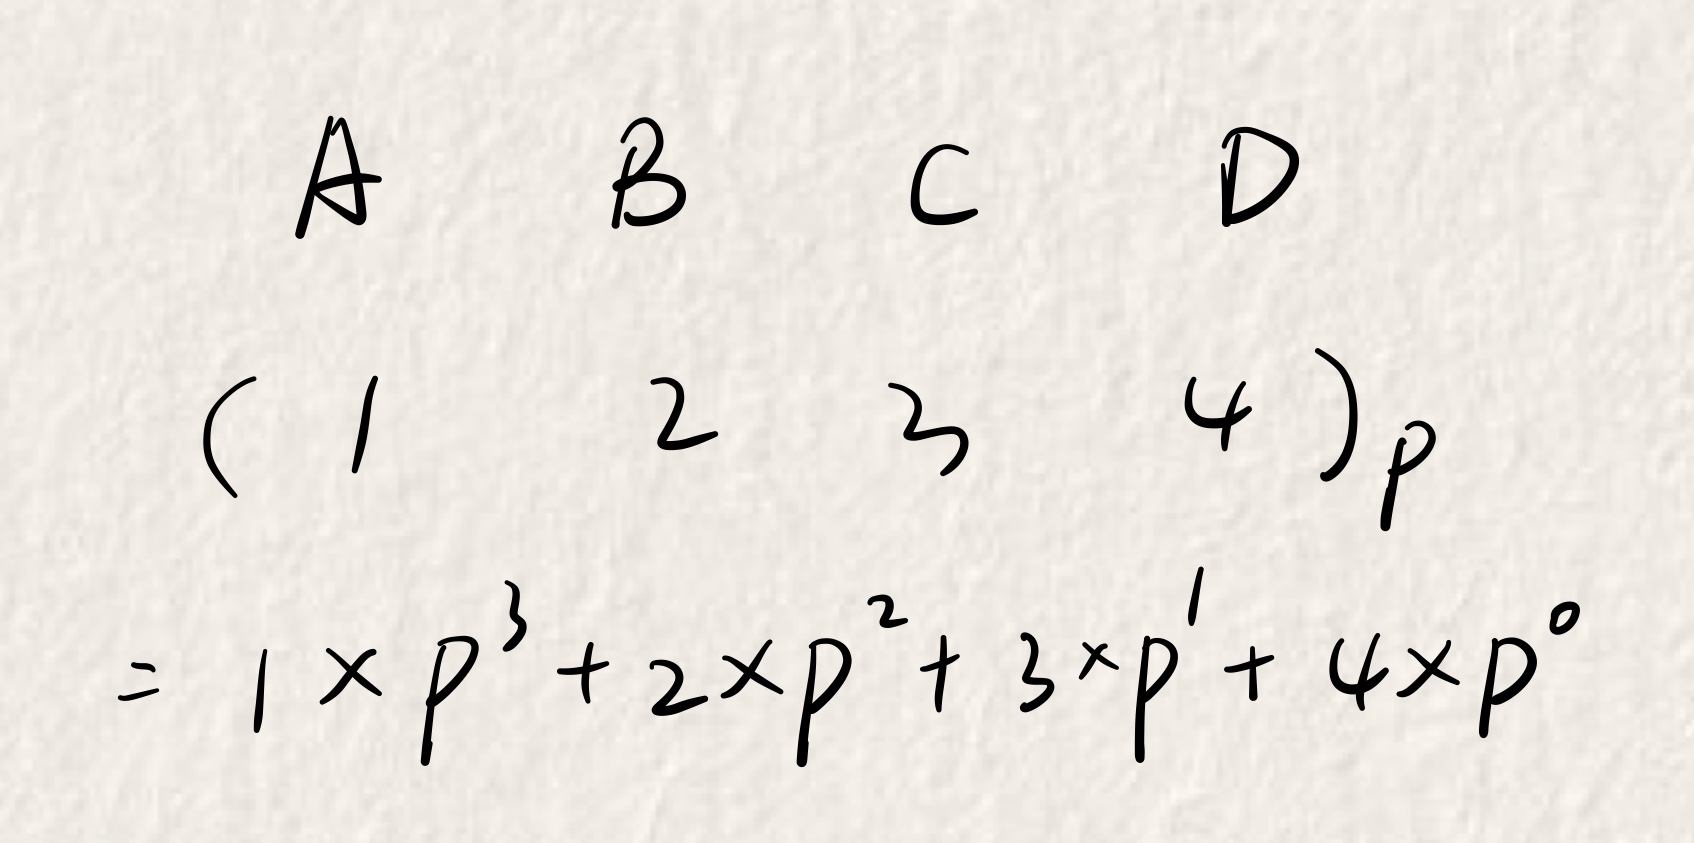 A B C D
( 1 2 3 4 )p
= 1 × p³ + 2 × p² + 3 × p¹ + 4 × p⁰